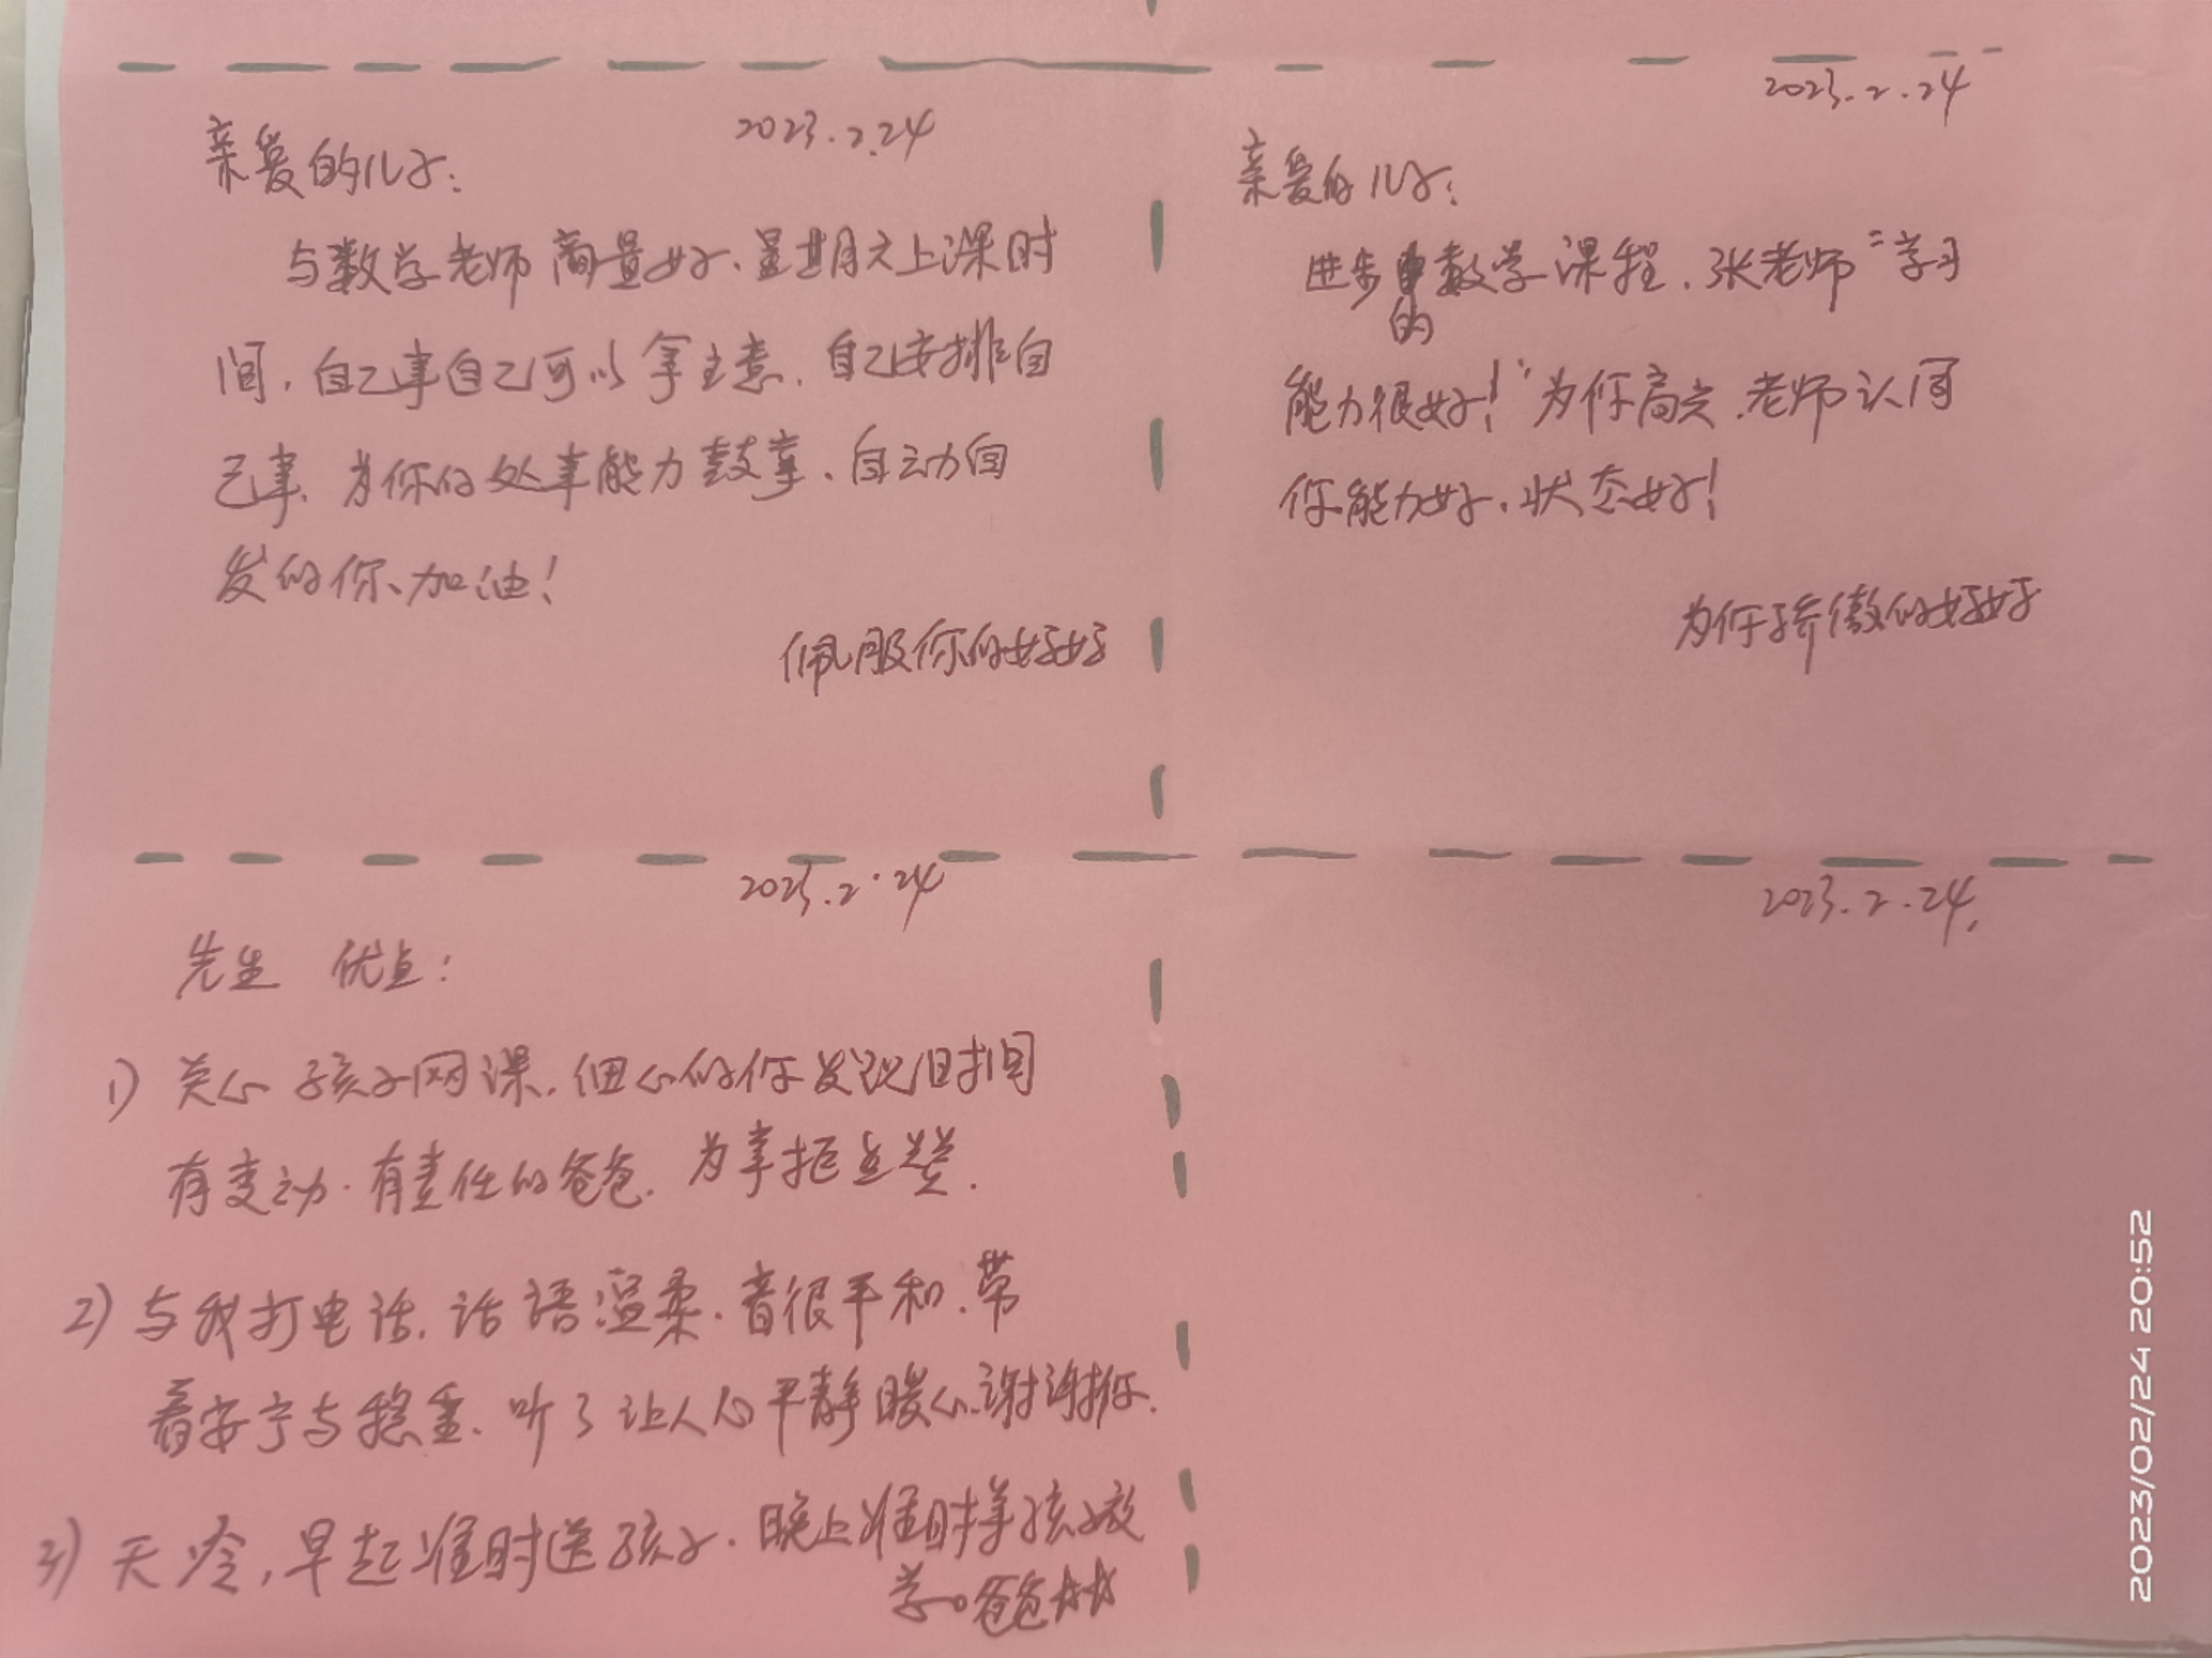 2023.2.24
亲爱的儿子:
与数学老师商量好、星期六上课时
间,自己事自己可以拿主意,自己安排自
己事、为你的处事能力鼓掌、自动自
发的你、加油!
佩服你的好好
2023.2.24
亲爱的儿子:
进步数学课程,张老师“学习
的
能力很好!”为你高兴,老师认同
你能力好、状态好!
为你骄傲的好好
2023.2.24
先生 优点:
1) 关心孩子网课,细心的你发现时间
有变动.有责任的爸爸.为掌把点赞.
2) 与我打电话,话语温柔.音很平和.带
着安宁与稳重.听了让人心平静暖心.谢谢你.
3) 天冷,早起准时送孩子.晚上准时等孩子放
学。爸爸
2023.2.24.
2023/02/24 20:52